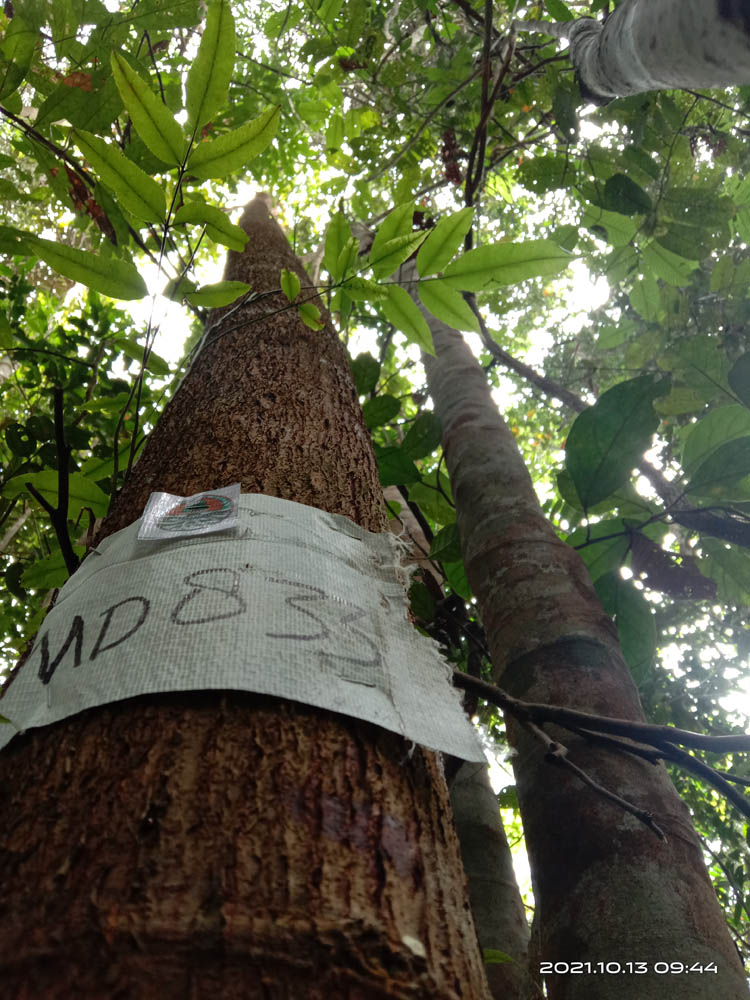 MD 833
2021.10.13 09:44